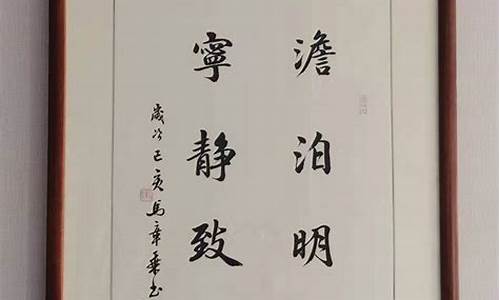 澹泊明
寧靜致
歲次己亥馬章乘书